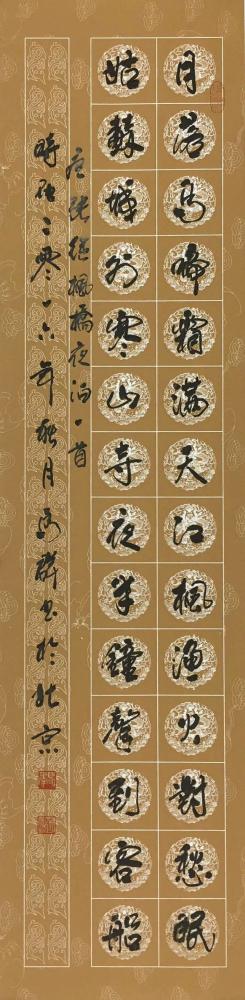 月落烏啼霜滿天江楓漁火對愁眠
姑蘇城外寒山寺夜半鐘聲到客船
唐張繼楓橋夜泊一首
時在二零一六年秋月群書於北京